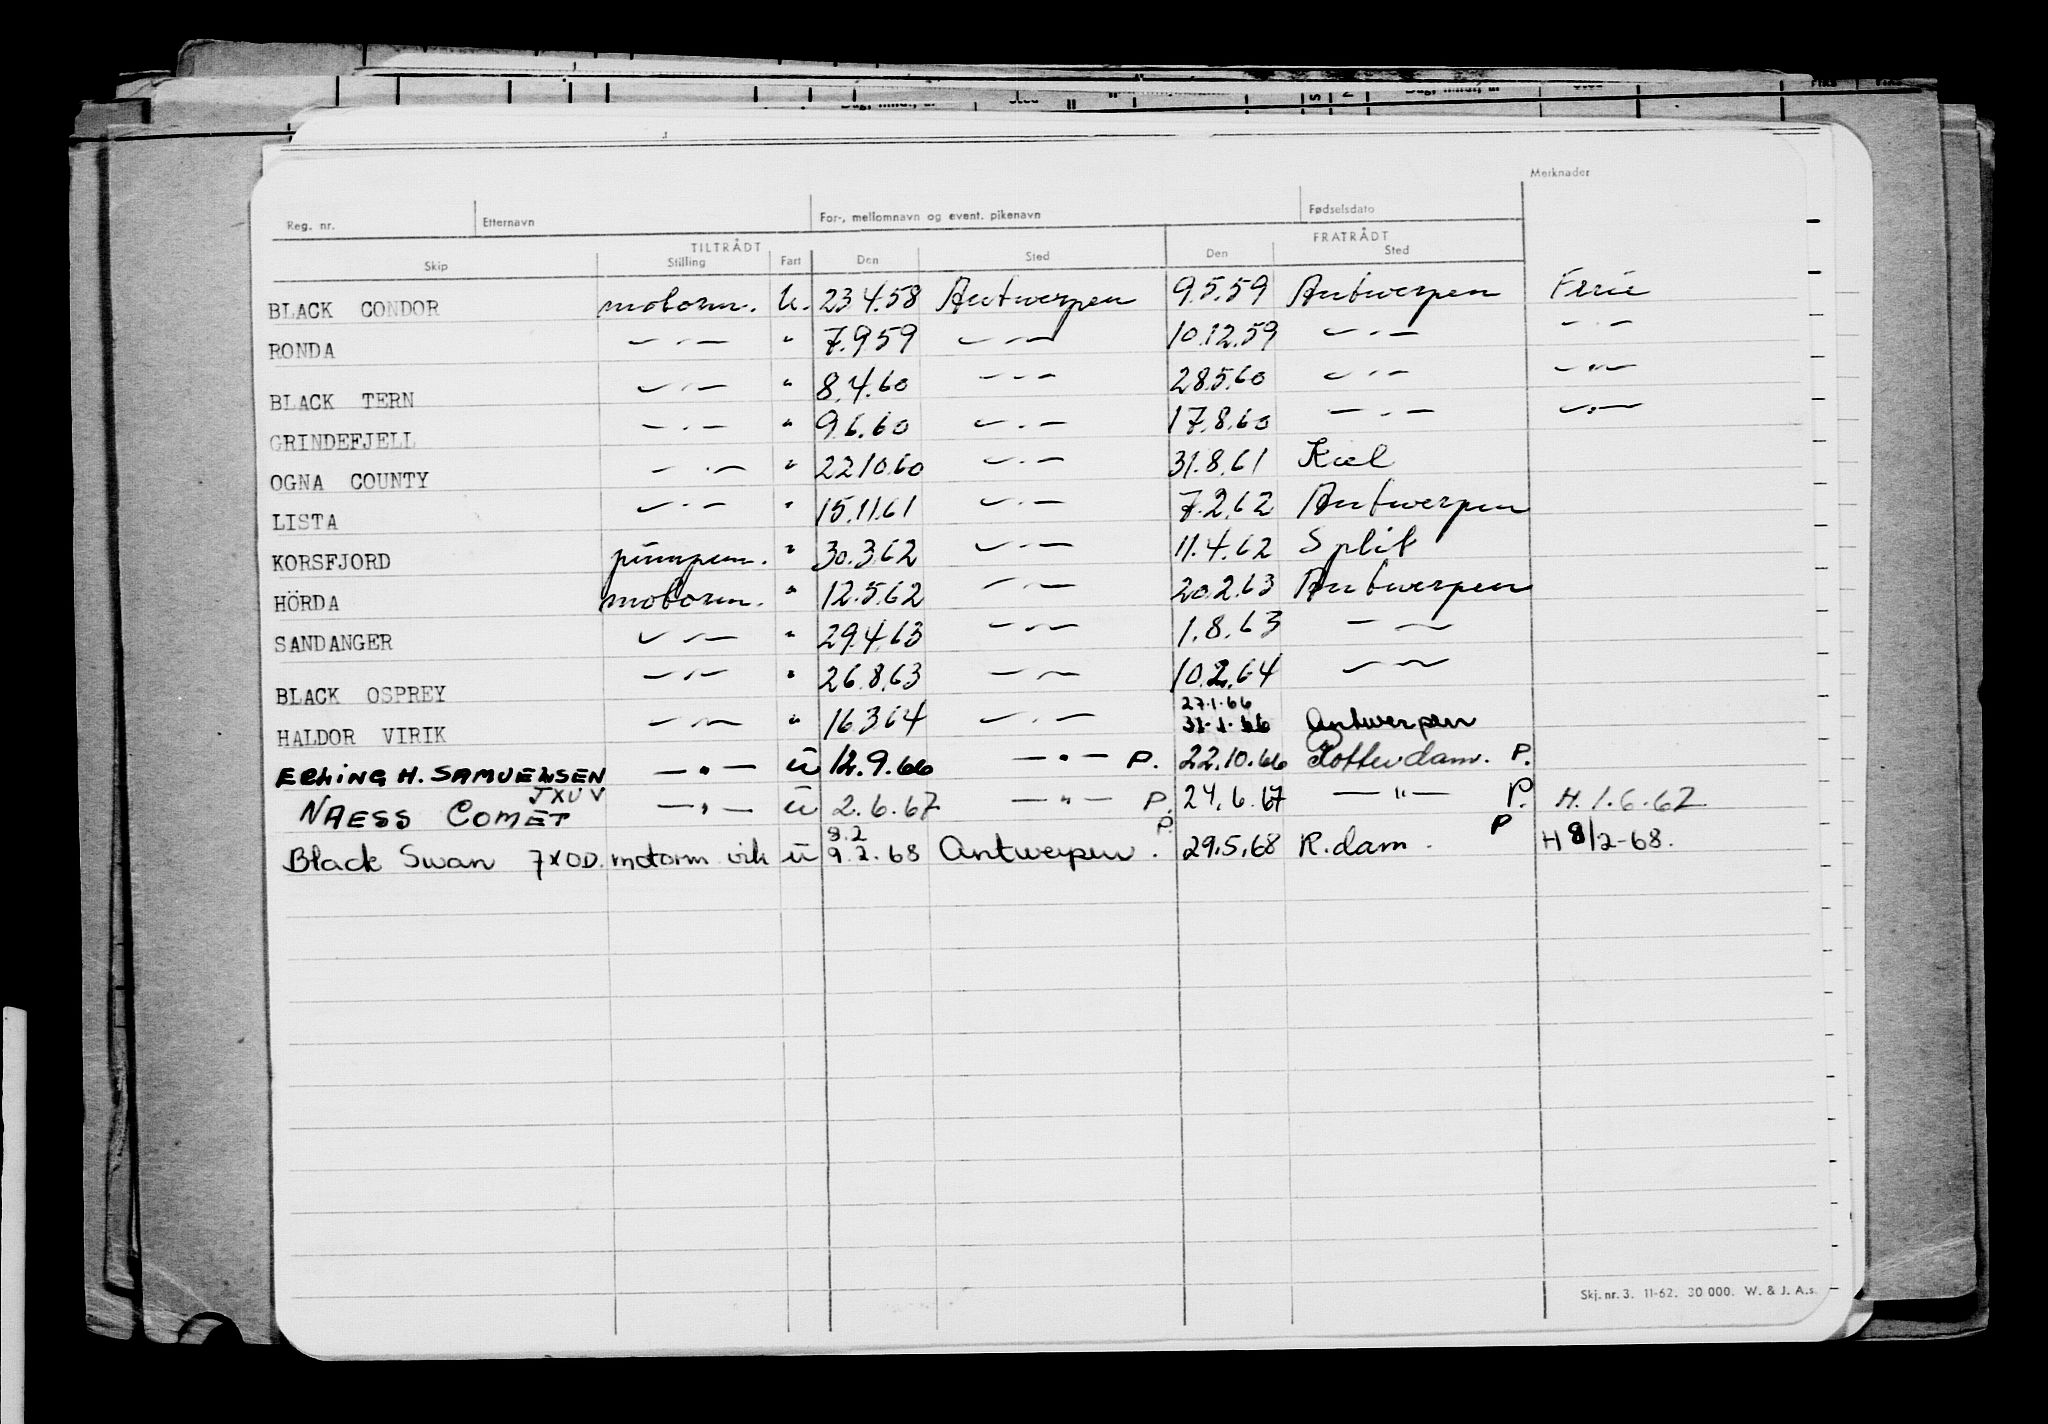 Merknader
Reg. nr. Etternavn For-, mellomnavn og event. pikenavn Fødselsdato
TILTRÅDT FRATRÅDT
Skip Stilling Fart Den Sted Den Sted
BLACK CONDOR motorm. U. 23 4.58 Antwerpen 9.5.59 Antwerpen Ferie
RONDA — " — " 7.9 59 — " — 10.12.59 — " — — " —
BLACK TERN — " — " 8.4.60 — " — 28.5.60 — " — — " —
GRINDEFJELL — " — " 9.6.60 — " — 17.8.60 — " — — " —
OGNA COUNTY — " — " 22 10.60 — " — 31.8.61 Kiel
LISTA — " — " 15.11.61 — " — 7.2.62 Antwerpen
KORSFJORD pumpem. " 30.3.62 — " — 11.4.62 Split
HÖRDA motorm. " 12.5.62 — " — 20.2.63 Antwerpen
SANDANGER — " — " 29.4.63 — " — 1.8.63 — " —
BLACK OSPREY — " — " 26.8.63 — " — 10.2.64 — " —
27.1.66
HALDOR VIRIK — " — " 16 3 64 — " — 31.1.66 Antwerpen
ERLING H. SAMUELSEN — " — u 12.9.66 — " — P. 22.10.66 Rotterdam. P.
NAESS COMET JXUV — " — u 2.6.67 — " — P. 24.6.67 — " — P. H. 1.6.67
8.2 P. P
Black Swan JXOD. motorm vik u 9.2.68 Antwerpen . 29.5.68 R.dam. H 8/2-68.
Skj. nr. 3. 11-62. 30 000. W. & J. A.s.